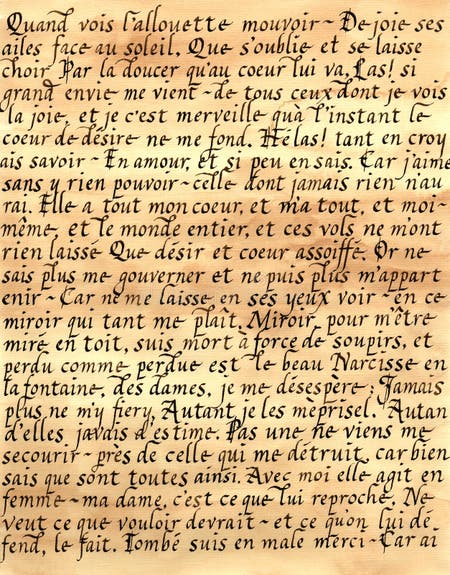 Quand vois l'allouette mouvoir ~ De joie ses
ailes face au soleil, Que s'oublie et se laisse
choir Par la doucer qu'au coeur lui va, Las! si
grand envie me vient ~ de tous ceux dont je vois
la joie, et je c'est merveille qu'à l'instant le
coeur de désire ne me fond. Hélas! tant en croy
ais savoir ~ En amour, et si peu en sais. Car j'aime
sans y rien pouvoir ~ celle dont jamais rien n'au
rai. Elle a tout mon coeur, et m'a tout, et moi-
même, et le monde entier, et ces vols ne m'ont
rien laissé Que désir et coeur assoiffé. Or ne
sais plus me gouverner et ne puis plus m'appart
enir ~ Car ne me laisse en ses yeux voir ~ en ce
miroir qui tant me plaît. Miroir, pour m'être
miré en toit, suis mort à force de soupirs, et
perdu comme perdue est le beau Narcisse en
la fontaine, des dames, je me désespère; Jamais
plus ne m'y fiery, Autant je les méprisel. Autan
d'elles javais d'estime. Pas une ne viens me
secourir ~ près de celle qui me détruit, car bien
sais que sont toutes ainsi. Avec moi elle agit en
femme ~ ma dame, c'est ce que lui reproche, Ne
veut ce que vouloir devrait ~ et ce qu'on lui dé
fend, le fait. Tombé suis en male merci ~ Car ai